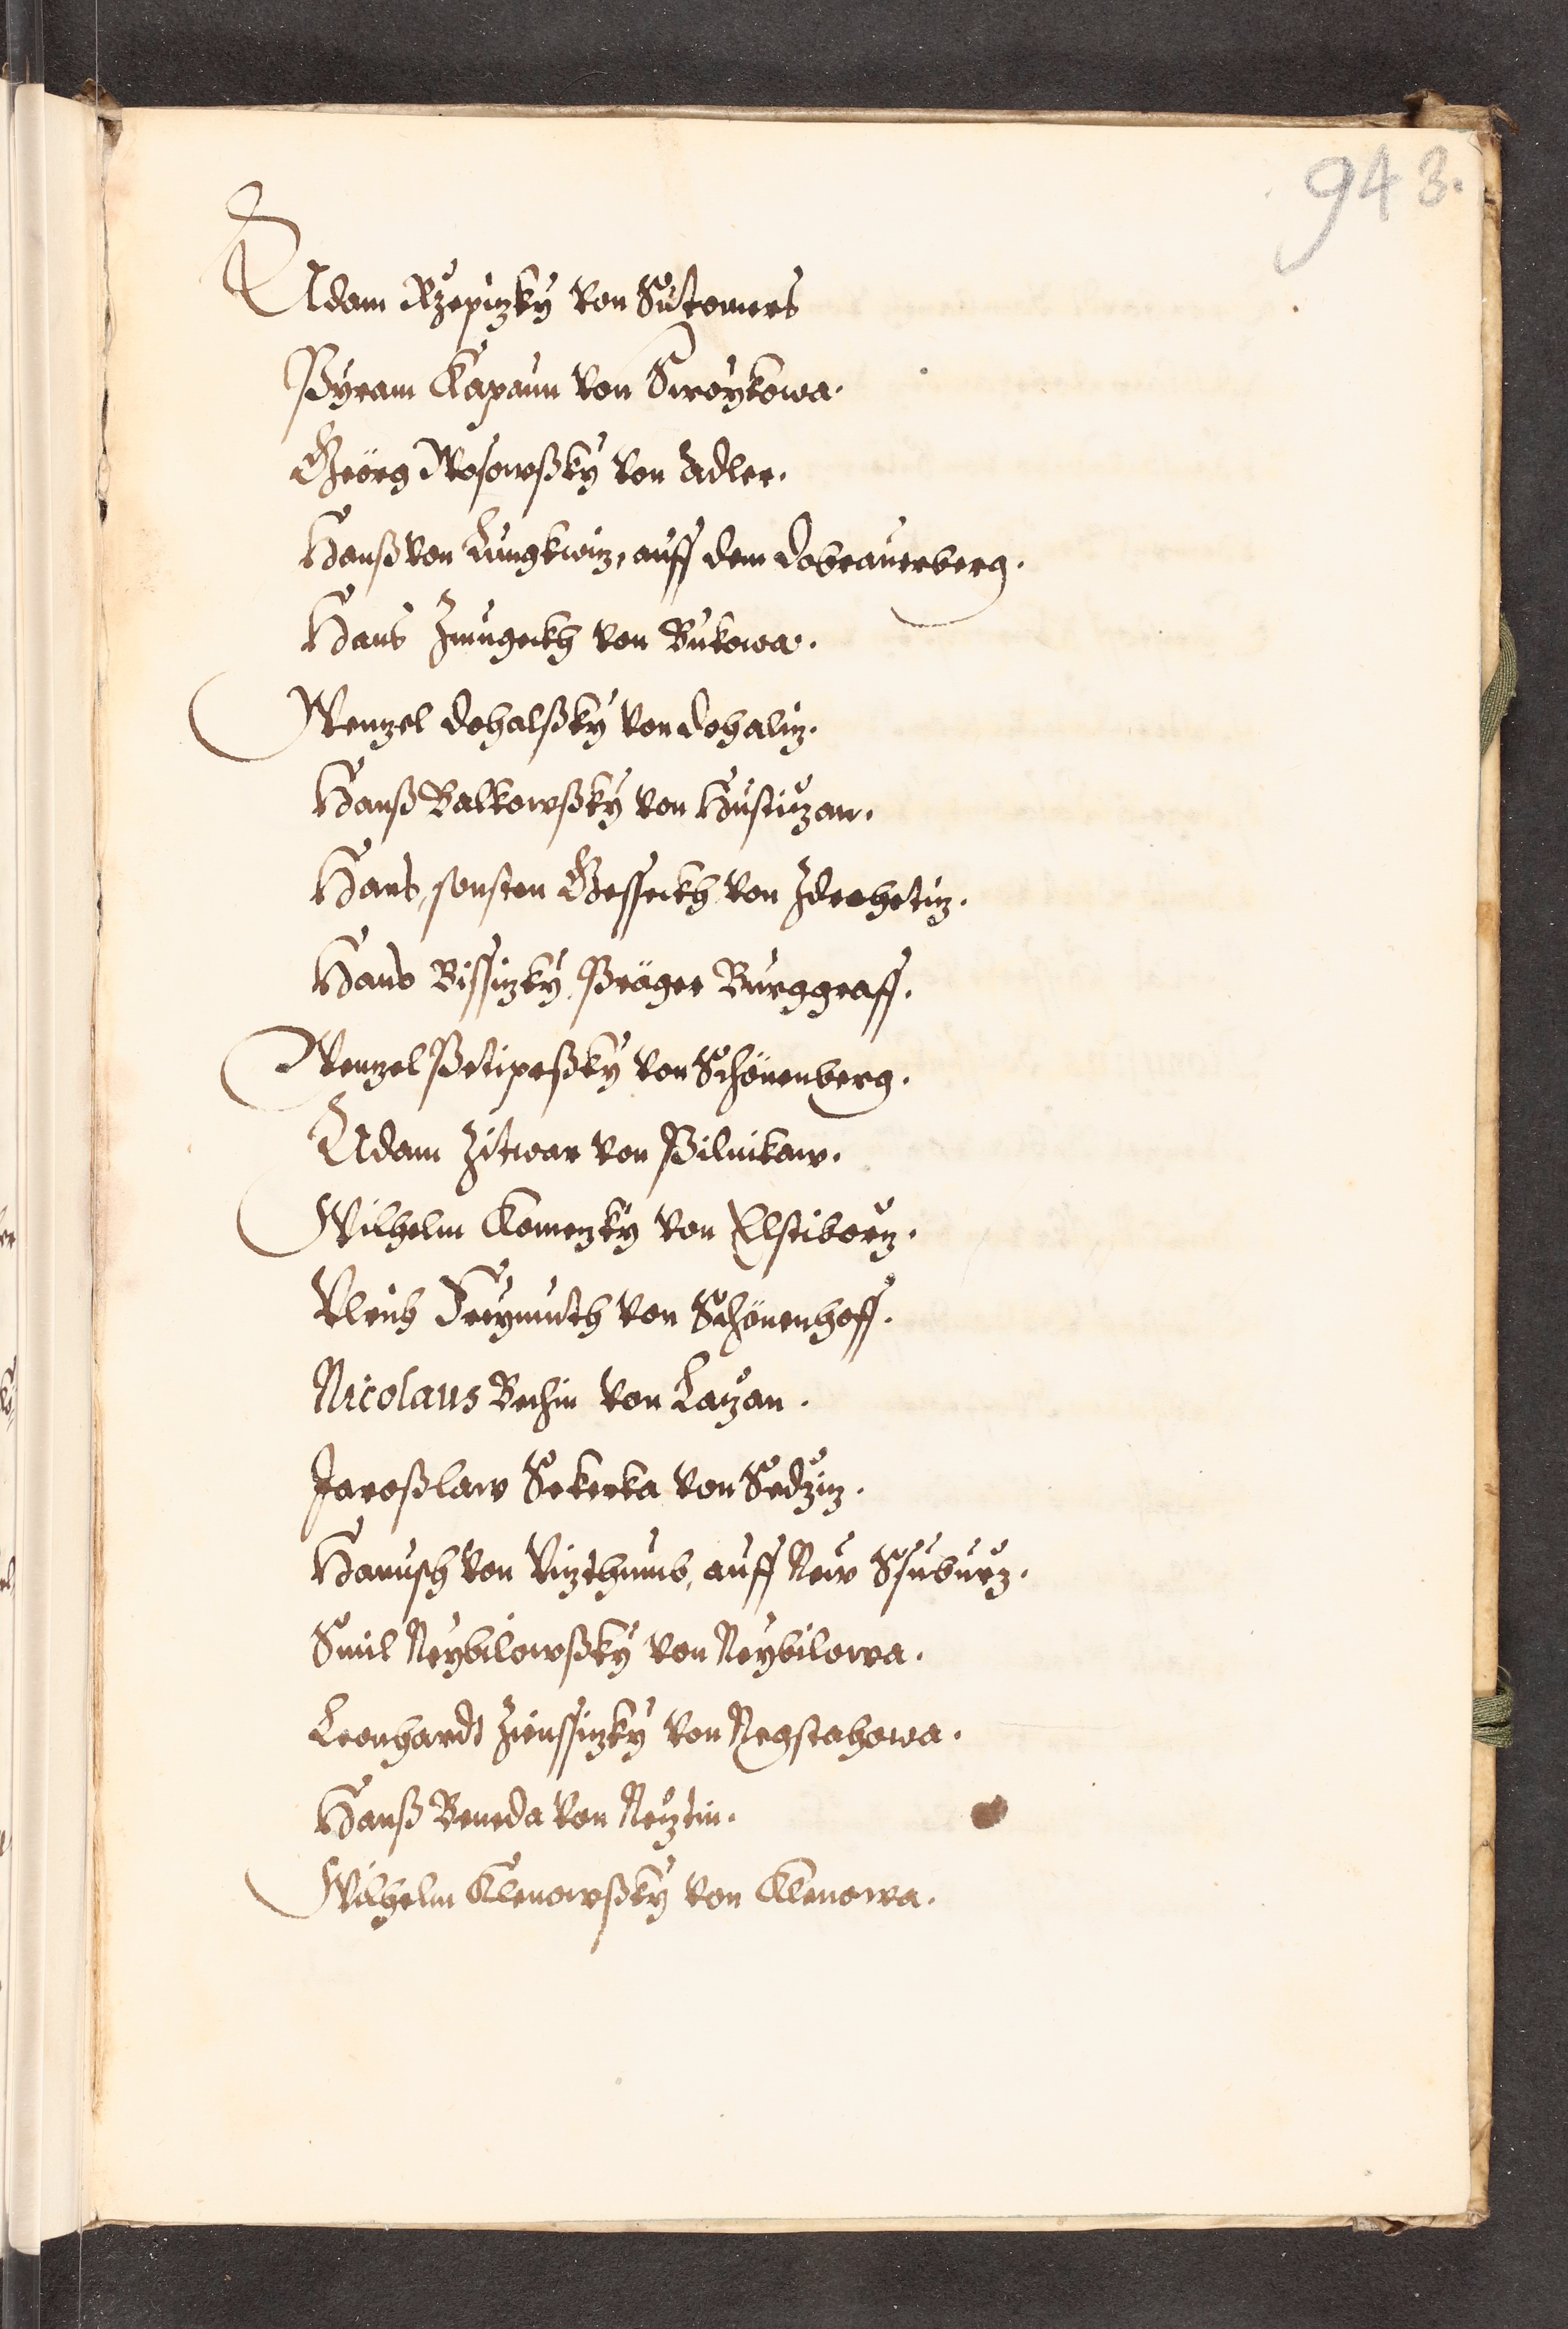 943.
Adam Rzepizký von Sutomers
Pÿram Kapaun von Swoÿkowa.
Georg Wosowßký von Adler.
Hanß von Lungkwiz, auff dem Dobrauerberg.
Hans Zmugeckh von Bukowa.
Wenzel Dohalßký von Dohaliz.
Hanß Balkowßký von Hustirzan.
Hans, sonsten Gesseckh von Zdrehetiz.
Hans Bissizký, Präger Burggraff.
Wenzel Petipeßký von Schönenberg.
Adam Zitwar von Pilnikaw.
Wilhelm Komenzký von Elstiborz.
Vlrich Freymuth von Schönenhoff.
Nicolaus Bechin von Lazan.
Jaroßlaw Sekerka von Sedziz.
Hanusch von Vizthumb, auff New Schuburz.
Smil Neybilowßký von Neybilowa.
Leonhardt Zienssizký von Negstahowa.
Hanß Beneda von Neztin.
Wilhelm Klenowßký von Klenowa.